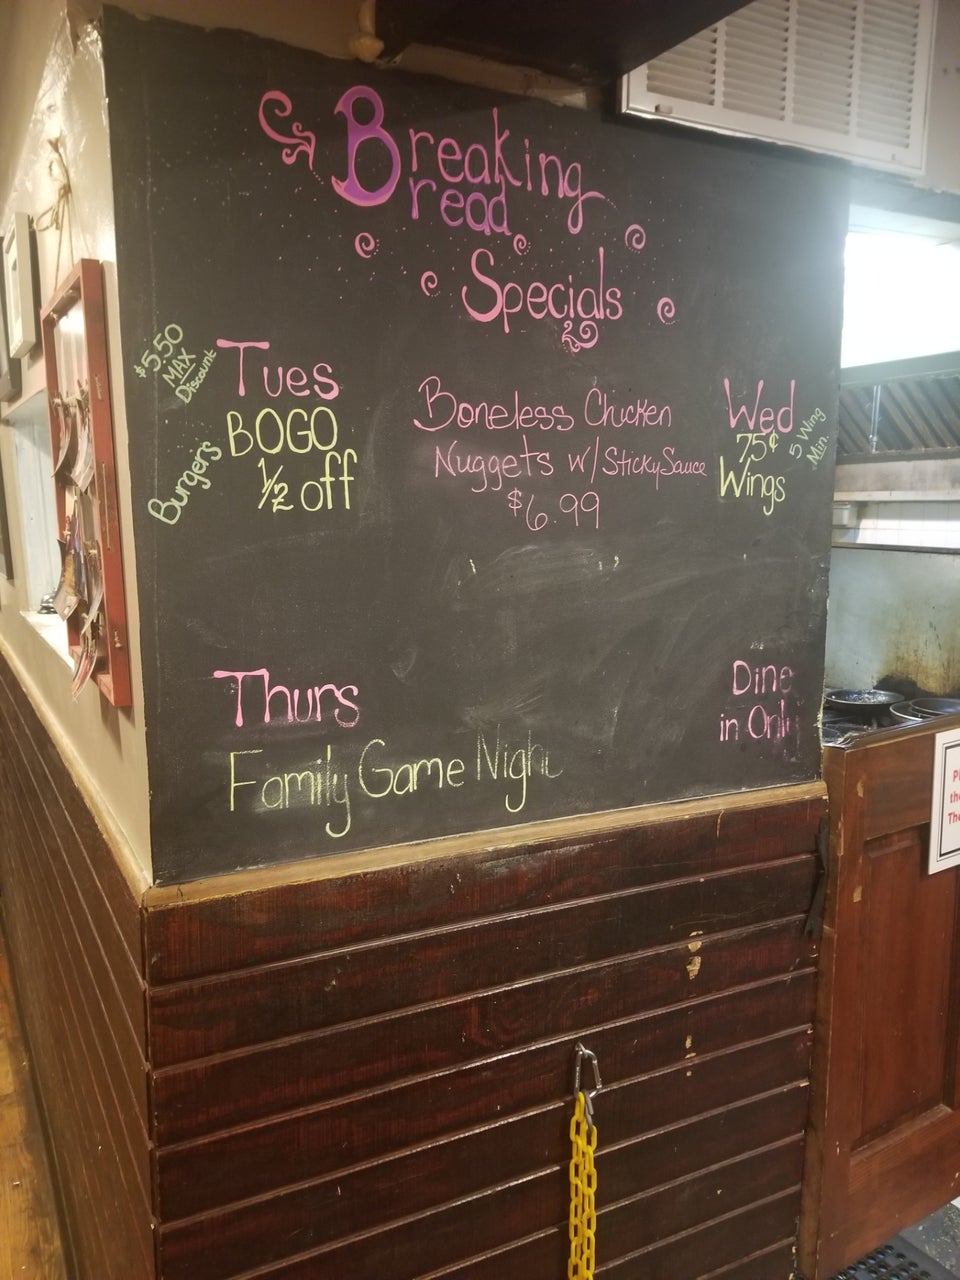 Breaking
Bread
Specials
$5.50
MAX
Discount
Tues
BOGO
1/2 off
Burger's
Boneless Chicken
Nuggets w/ Sticky Sauce
$6.99
Wed
75¢
Wings
5 Wing
Min.
Thurs
Family Game Night
Dine
in Only